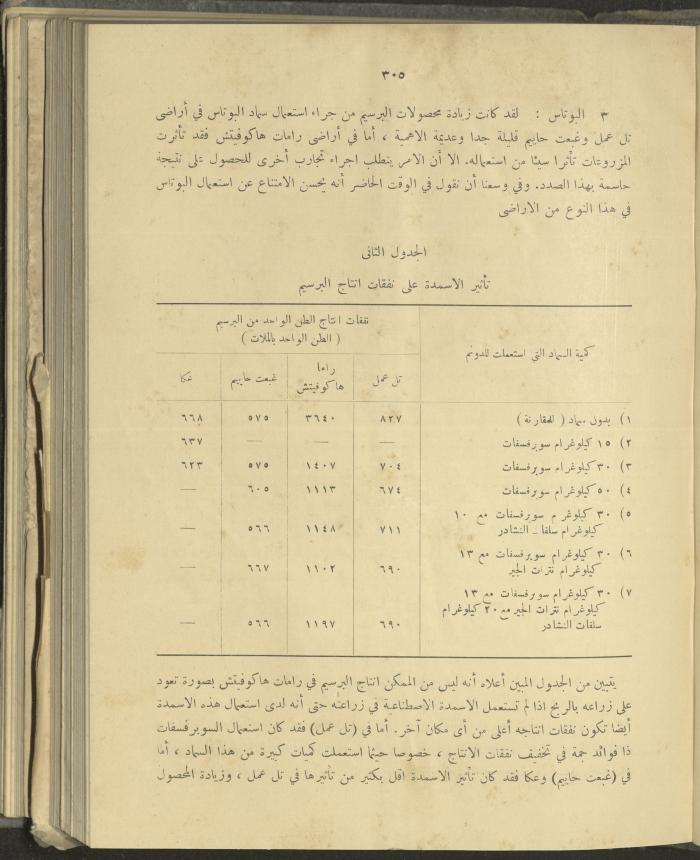 ٣٠٥
٣ البوتاس : لقد كانت زيادة محصولات البرسيم من جراء استعمال سماد البوتاس في أراضى
تل عمل وغبعت حاييم قليلة جدا وعديمة الاهمية ، أما في أراضى رامات هاكوفيتش فقد تأثرت
المزروعات تأثرا سيئا من استعماله. الا أن الامر يتطلب اجراء تجارب أخرى للحصول على نتيجة
حاسمة بهذا الصدد. وفي وسعنا أن نقول في الوقت الحاضر أنه يحسن الامتناع عن استعمال البوتاس
في هذا النوع من الاراضى
الجدول الثانى
تأثير الاسمدة على نفقات انتاج البرسيم
كمية السماد التي استعملت للدونم
نفقات انتاج الطن الواحد من البرسيم
( الطن الواحد بالملات )
تل عمل
راما هاكوفيتش
غبعت حاييم
عكا
١) بدون سماد ( للمقارنة ) ٨٢٧ ٣٦٤٠ ٥٧٥ ٦٦٨
٢) ١٥ كيلوغرام سوبرفسفات — — — ٦٣٧
٣) ٣٠ كيلوغرام سوبرفسفات ٧٠٤ ١٤٠٧ ٥٧٥ ٦٢٣
٤) ٥٠ كيلوغرام سوبرفسفات ٦٧٤ ١١١٣ ٦٠٥ —
٥) ٣٠ كيلوغرام سوبرفسفات مع ١٠
كيلوغرام سلفات النشادر ٧١١ ١١٤٨ ٥٦٦ —
٦) ٣٠ كيلوغرام سوبرفسفات مع ١٣
كيلوغرام نترات الجير ٦٩٠ ١١٠٢ ٦٦٧ —
٧) ٣٠ كيلوغرام سوبرفسفات مع ١٣
كيلوغرام نترات الجير مع ٢٠ كيلوغرام
سلفات النشادر ٦٩٠ ١١٩٧ ٥٦٦ —
يتبين من الجدول المبين أعلاه أنه ليس من الممكن انتاج البرسيم في رامات هاكوفيتش بصورة تعود
على زراعه بالربح اذا لم تستعمل الاسمدة الاصطناعية في زراعته حتى أنه لدى استعمال هذه الاسمدة
أيضا تكون نفقات انتاجه أغلى من أى مكان آخر. أما في (تل عمل) فقد كان استعمال السوبرفسفات
ذا فوائد جمة في تخفيف نفقات الانتاج ، خصوصا حيثما استعملت كميات كبيرة من هذا السماد ، أما
في (غبعت حاييم) وعكا فقد كان تأثير الاسمدة اقل بكثير من تأثيرها في تل عمل ، وزيادة المحصول